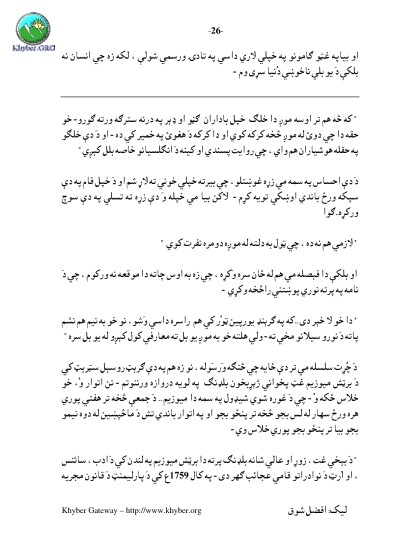 -26-
Khyber.ORG
او بيا په غټو ګامونو په خپلي لاري داسي په تادۍ ورسمي شولې ، لکه زه چي انسان نه
بلکې دَ يو بلي ناخوښي دُنيا سړی وم -
"که څه هم تر اوسه موږ دا خلګ خپل باداران ګڼو او ډېر په درنه سترګه ورته ګورو- خو
حقه دا چي دوئ له موږ څخه کرکه کوي او دا کرکه دَ هغوئ په خمير کي ده - او دَ دې خلګو
په حقله هوشياران هم وايي ، چي روايت پسندي او کينه دَ انګلسيانو خاصه بلل کېږي"
دَ دې احساس په سمه مي زړه غوښتلو، چي بيرته خپلي خوني ته لاړ شم او دَ خپل قام په دې
سپکه ورځ باندي اوښکي تويه کړم - لاکن بيا مي خپله وَ دې زړه ته تسلي په دې سوچ
ورکړه. ګوا
"لازمي هم نه ده ، چي ټول به دلته له موږه دومره نفرت کوي"
او بلکې دا فيصله مي هم له ځان سره وکړه ، چي زه به اوس چاته دا موقعه نه ورکوم ، چي دَ
نامه په پرته نوري پوښتني را څخه وکړي -
"دا خو لا خبر دی ..که په ګرېنډ يورپين ټوَر کي هم راسره داسي وَشو ، نو خو به نيم هم نشم
پاته دَ نورو سيلانو مخي ته - ولي هلته خو به موږ يو بل ته معارفي کول کېږو له يو بل سره"
دَ چُرت سلسله مي تر دې ځايه چي څنګه وَرسَوله ، نو زه هم په دې ګرېټ روسېل سټريټ کي
دَ برټش ميوزيم غټ پخواني ژېړبخون بلډنګ په لويه دروازه ورننوتم - تن اتوار وُ، خو
خلاص ځکه وُ - چي دَ غوره شوي شيډول په سمه دا ميوزيم .. دَ جمعې څخه تر هفتي پوري
هره ورځ سهار له لس بجو څخه تر پنځو بجو او په اتوار باندي تش دَ ماځپښين له دوه نيمو
بجو بيا تر پنځو بجو پوري خلاص وي -
"دَ بيخي غټ ، زوړ او عالي شانه بلډنګ پرته دا برټش ميوزيم په لندن کي دَ ادب ، سائنس
، او آرټ دَ نوادراتو قامي عجائب ګهر دی - په کال 1759ع کي دَ پارليمنټ دَ قانون مجريه
Khyber Gateway – http://www.khyber.org
ليک: افضل شوق